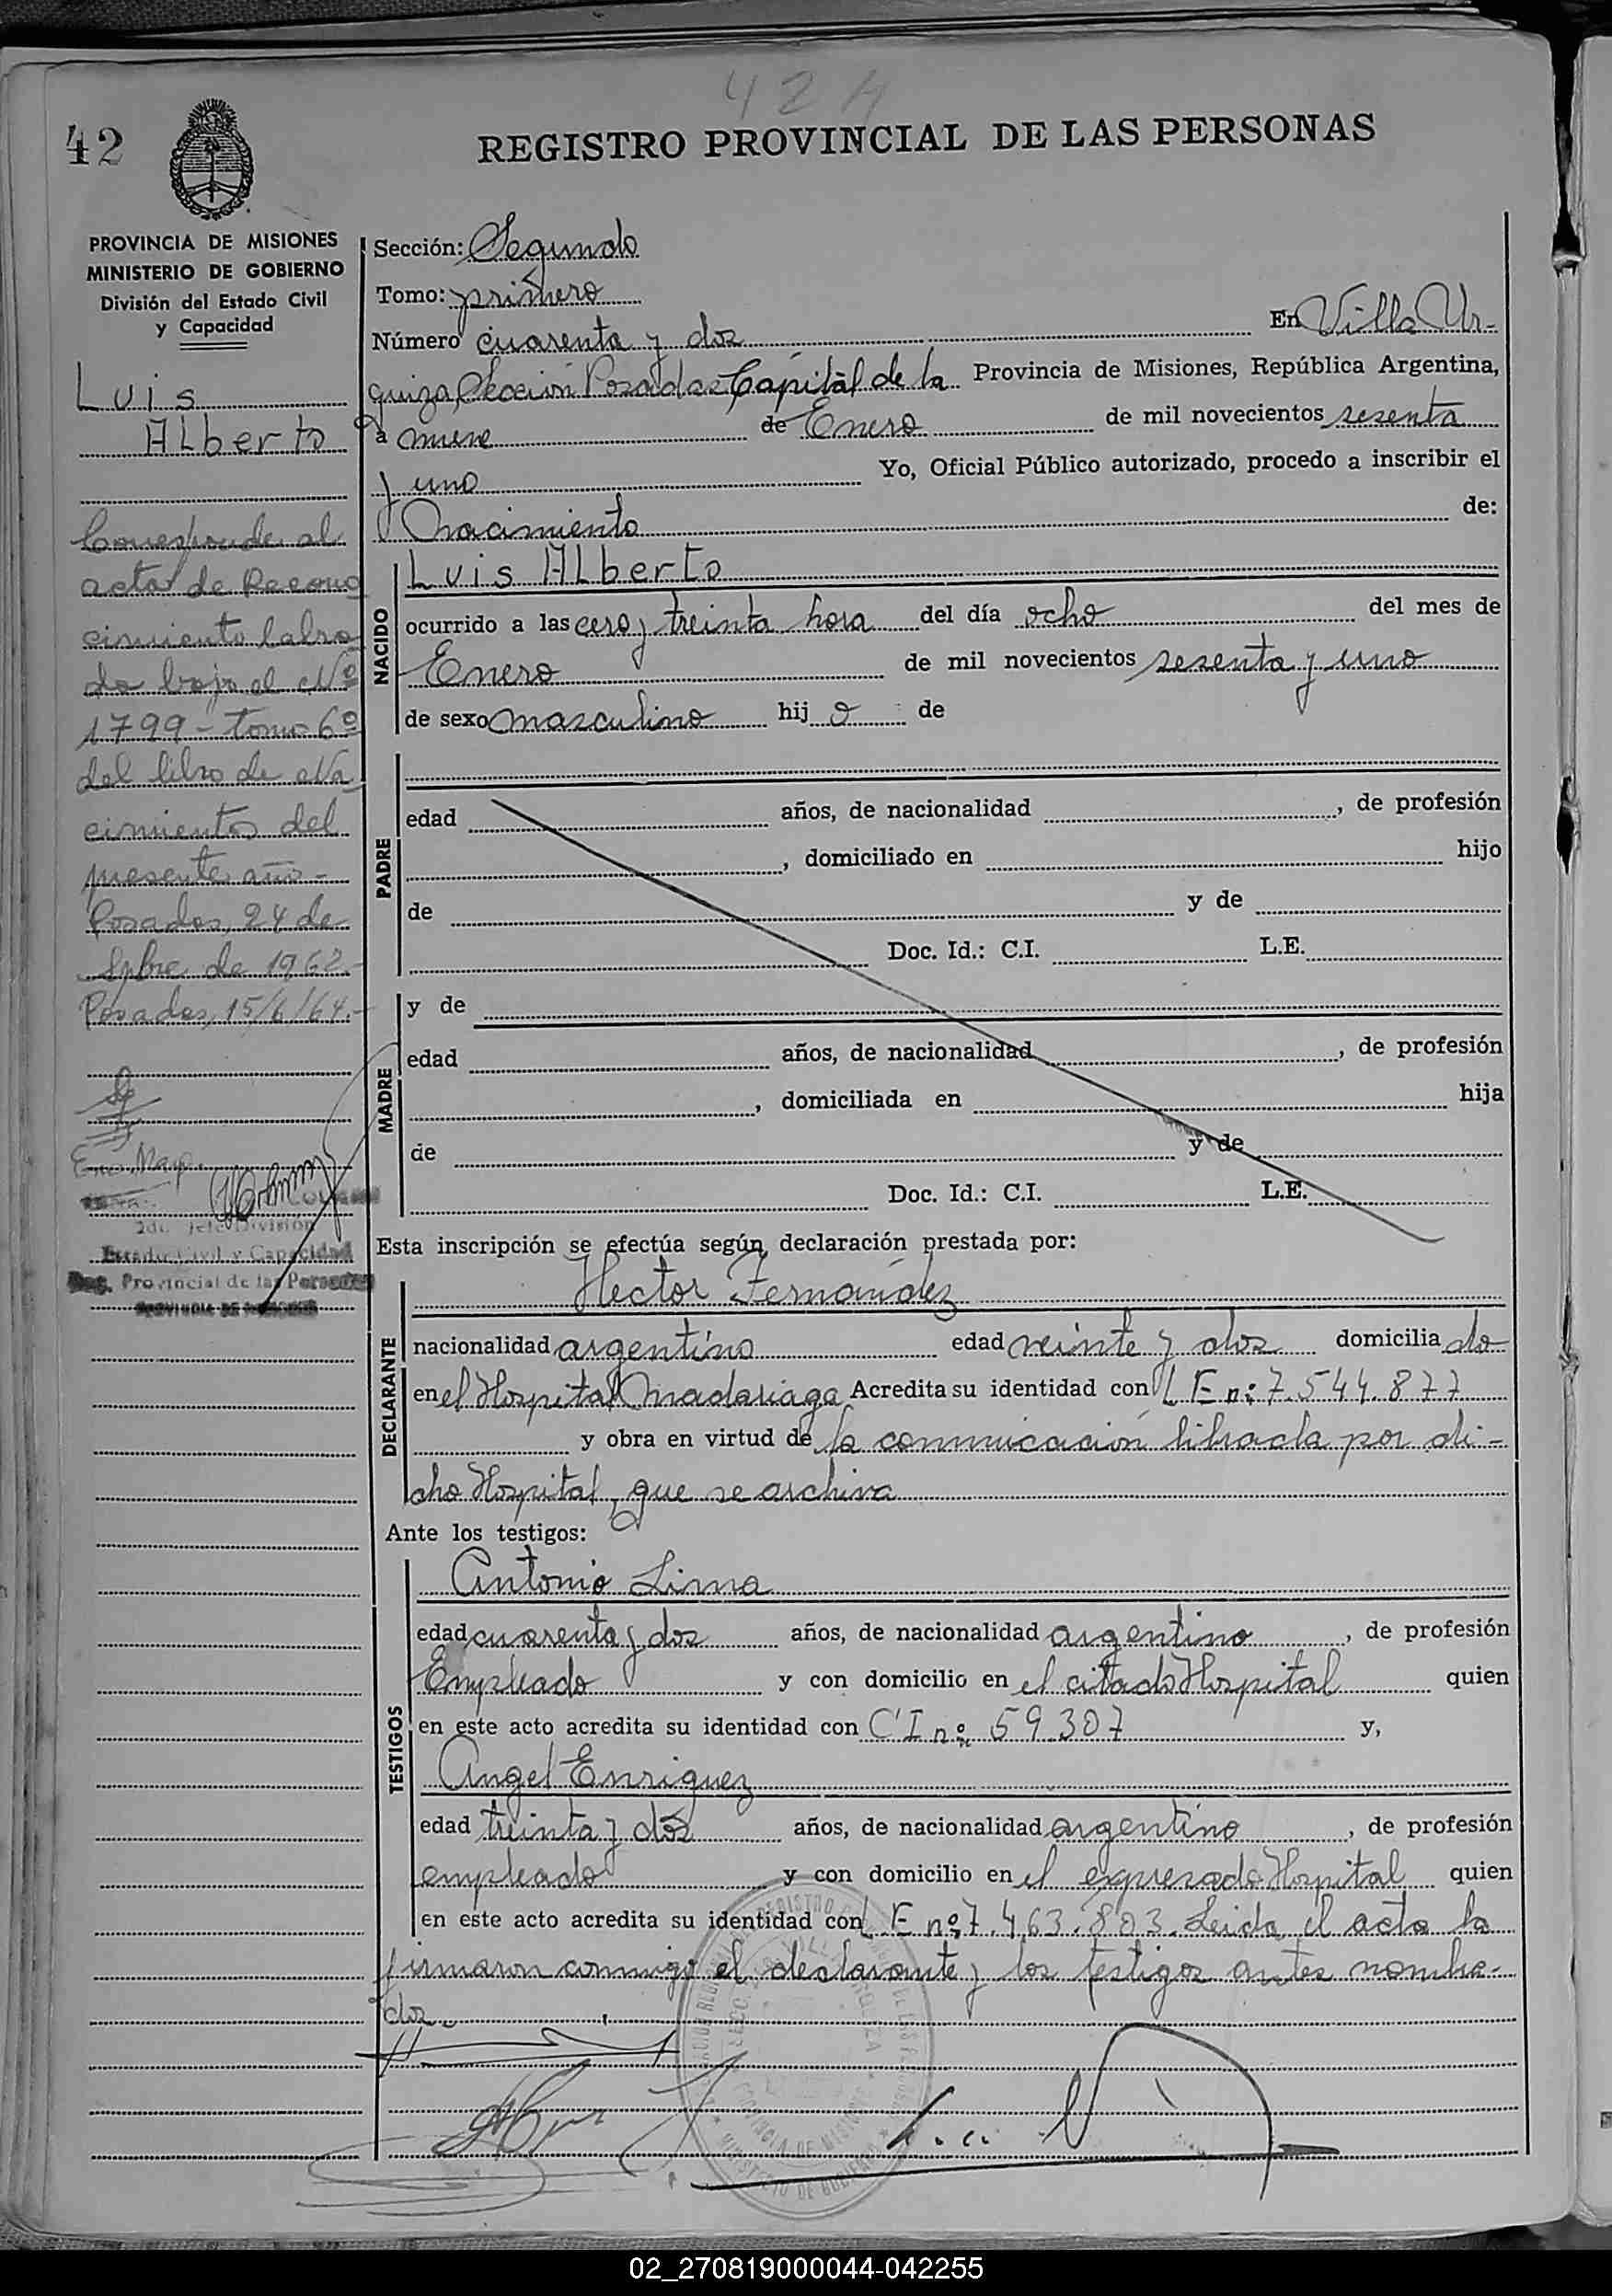 42 A
42
REGISTRO PROVINCIAL DE LAS PERSONAS
PROVINCIA DE MISIONES
MINISTERIO DE GOBIERNO
División del Estado Civil
y Capacidad
Luis
Alberto
Corresponde al
acta de Recono
cimiento labra
do bajo el Nº
1799 - tomo 6º
del libro de Na
cimientos del
presente año -
Posadas, 24 de
Spbre de 1962.-
Posadas, 15/6/64.-
2do. Jefe División
Estado Civil y Capacidad
Reg. Provincial de las Personas
PROVINCIA DE MISIONES
Sección: Segunda
Tomo: primero
Número cuarenta y dos En Villa Ur-
quiza, Sección Posadas Capital de la Provincia de Misiones, República Argentina,
a nueve de Enero de mil novecientos sesenta
y uno Yo, Oficial Público autorizado, procedo a inscribir el
Nacimiento de:
NACIDO
Luis Alberto
ocurrido a las cero y treinta hora del día ocho del mes de
Enero de mil novecientos sesenta y uno
de sexo masculino hij o de
PADRE
edad años, de nacionalidad , de profesión
, domiciliado en hijo
de y de
Doc. Id.: C.I. L.E.
MADRE
y de
edad años, de nacionalidad , de profesión
, domiciliada en hija
de y de
Doc. Id.: C.I. L.E.
Esta inscripción se efectúa según declaración prestada por:
DECLARANTE
Hector Fernández
nacionalidad argentino edad veinte y dos domicilia do
en el Hospital Madariaga Acredita su identidad con L E nº 7.544.877
y obra en virtud de la comunicación librada por di-
cho Hospital, que se archiva
Ante los testigos:
TESTIGOS
Antonio Lima
edad cuarenta y dos años, de nacionalidad argentino , de profesión
Empleado y con domicilio en el citado Hospital quien
en este acto acredita su identidad con C I nº 59.307 y,
Angel Enriquez
edad treinta y dos años, de nacionalidad argentino , de profesión
empleado y con domicilio en el expresado Hospital quien
en este acto acredita su identidad con L E nº 7.463.803. Leida el acta la
firmaron conmigo el declarante y los testigos antes nombra-
dos.-
02_270819000044-042255